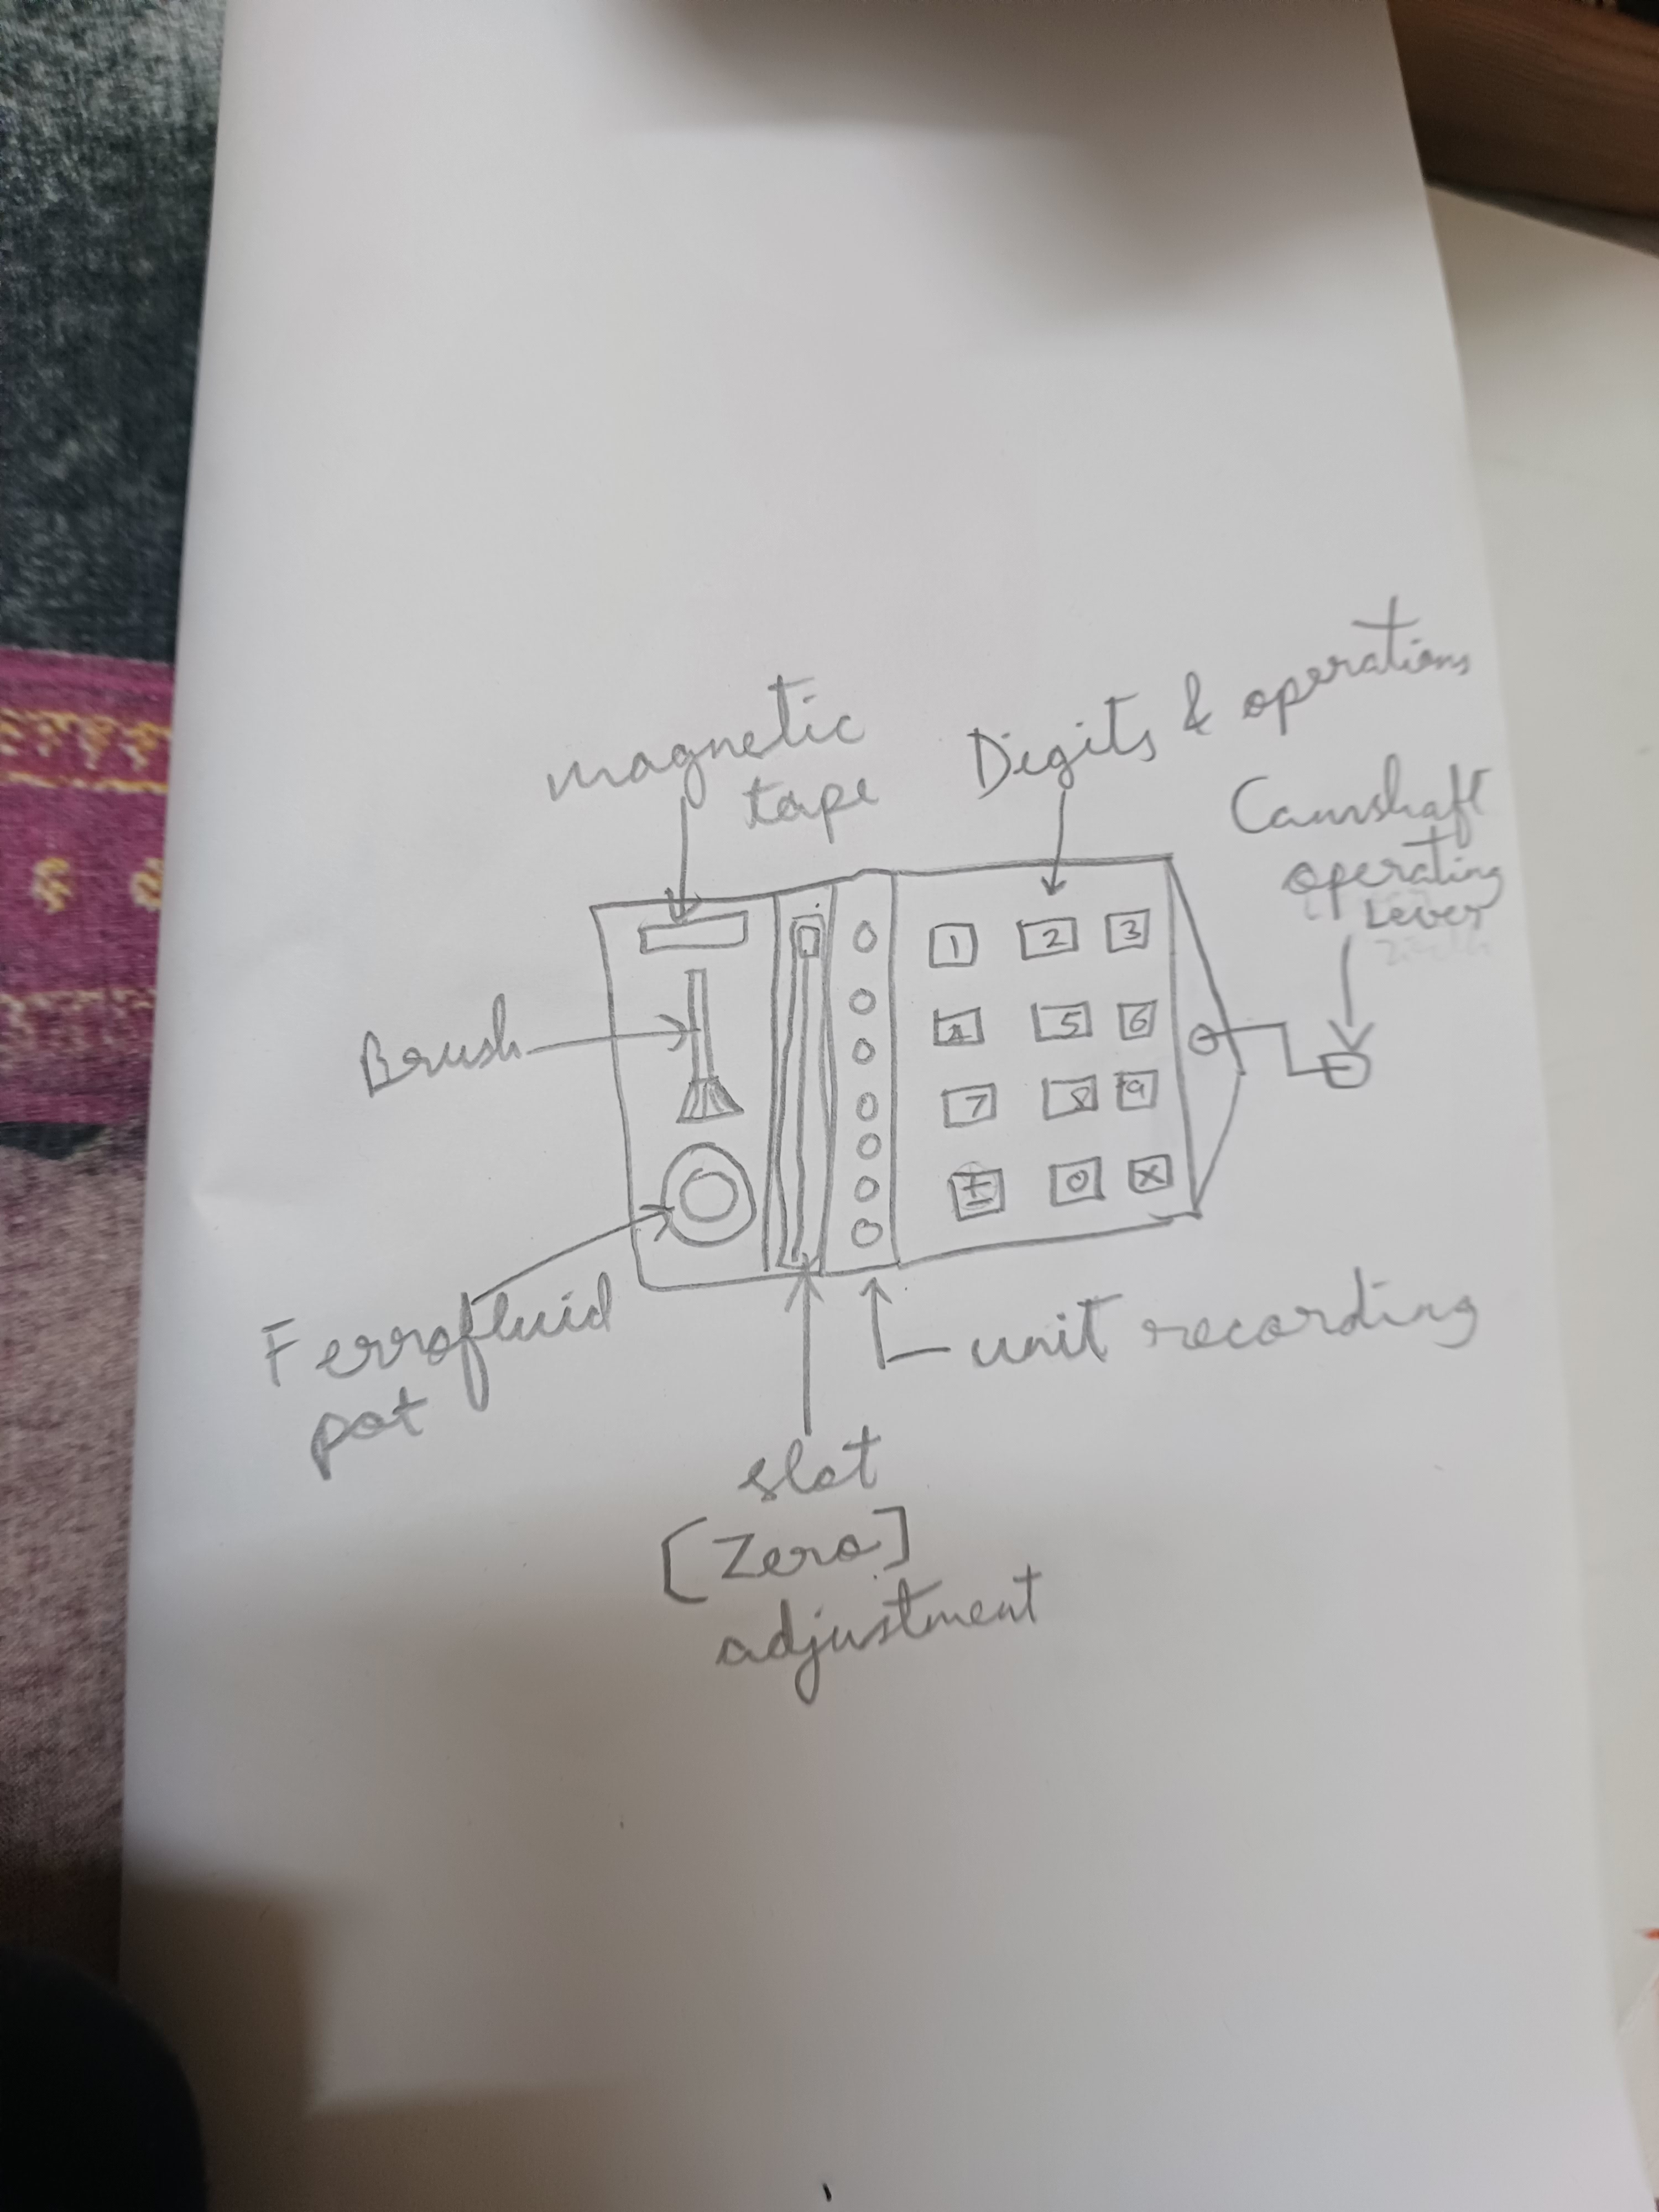 magnetic
tape
Digits & operations
Camshaft
operating
Lever
1 2 3
4 5 6
Brush
7 8 9
± 0 X
Ferrofluid
pot
unit recording
slot
[Zero]
adjustment